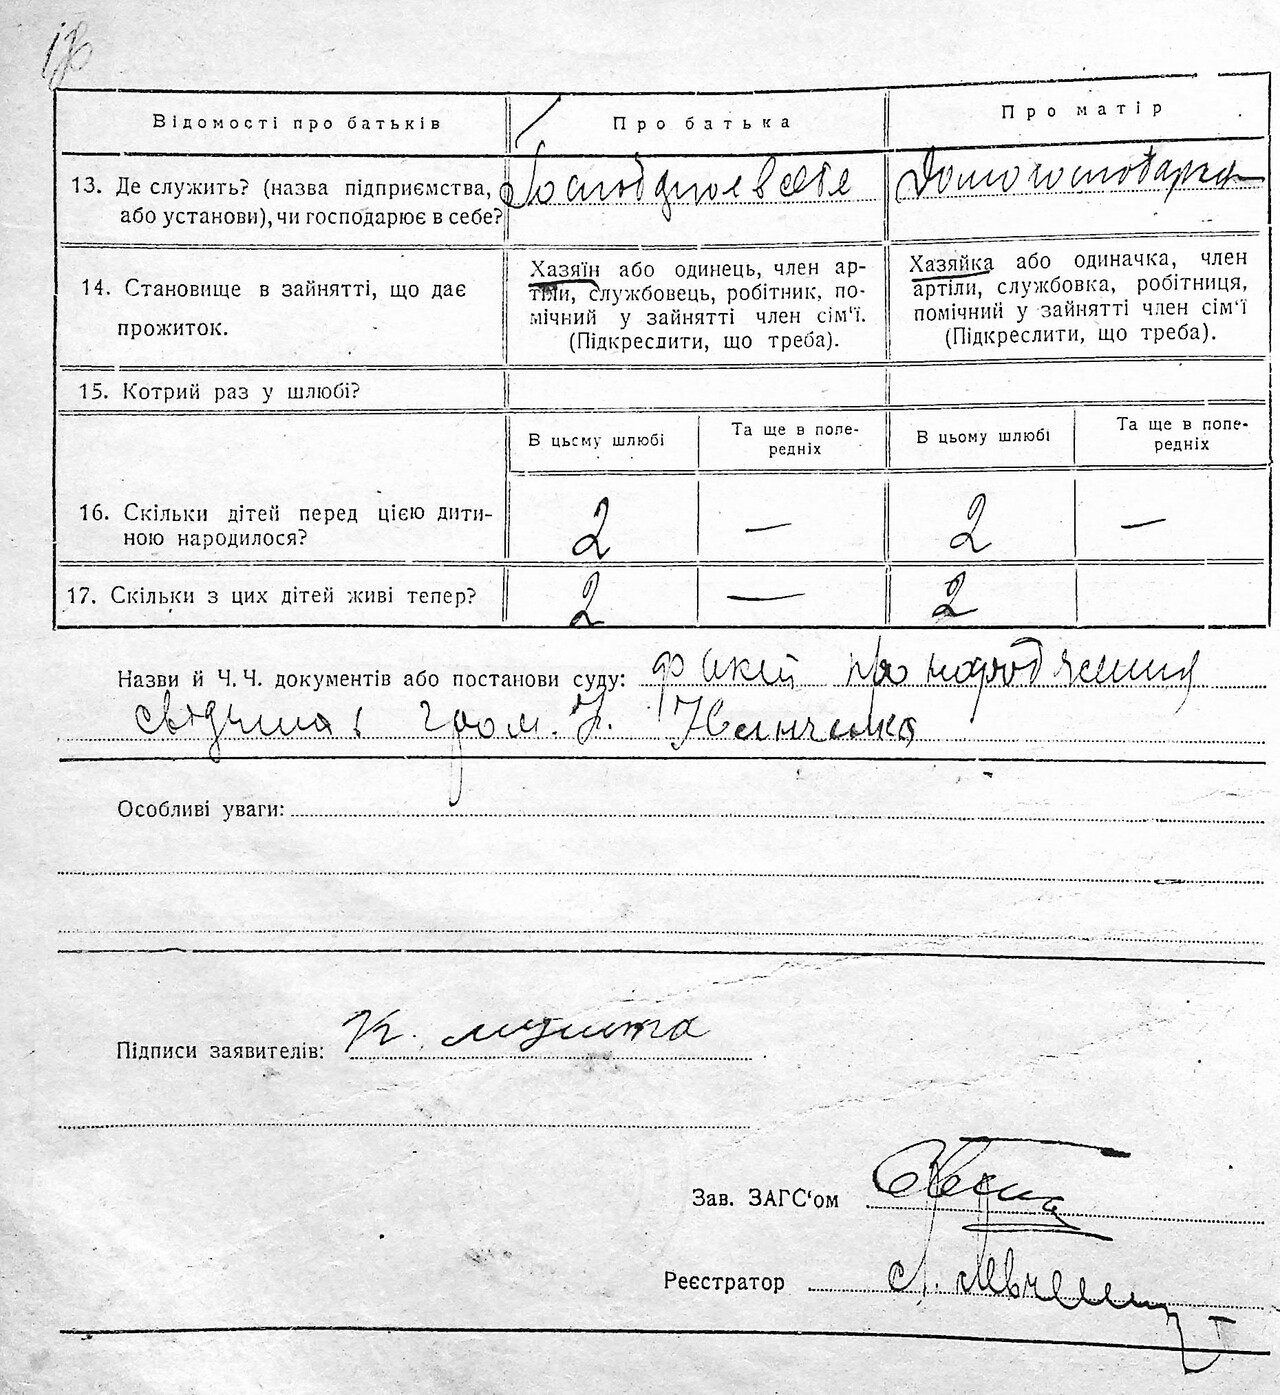 Відомості про батьків
Про батька
Про матір
13. Де служить? (назва підприємства,
або установи), чи господарює в себе?
Господарює в себе
Домогосподарка
14. Становище в зайнятті, що дає
прожиток.
Хазяїн або одинець, член ар-
тіли, службовець, робітник, по-
мічний у зайнятті член сім'ї.
(Підкреслити, що треба).
Хазяйка або одиначка, член
артіли, службовка, робітниця,
помічний у зайнятті член сім'ї
(Підкреслити, що треба).
15. Котрий раз у шлюбі?
В цьсму шлюбі
Та ще в попе-
редніх
В цьому шлюбі
Та ще в попе-
редніх
16. Скільки дітей перед цією дити-
ною народилося?
2 — 2 —
17. Скільки з цих дітей живі тепер?
2 — 2
Назви й Ч. Ч. документів або постанови суду: про народження
гром.
Особливі уваги:
Підписи заявителів: К.
Зав. ЗАГС'ом
Реєстратор